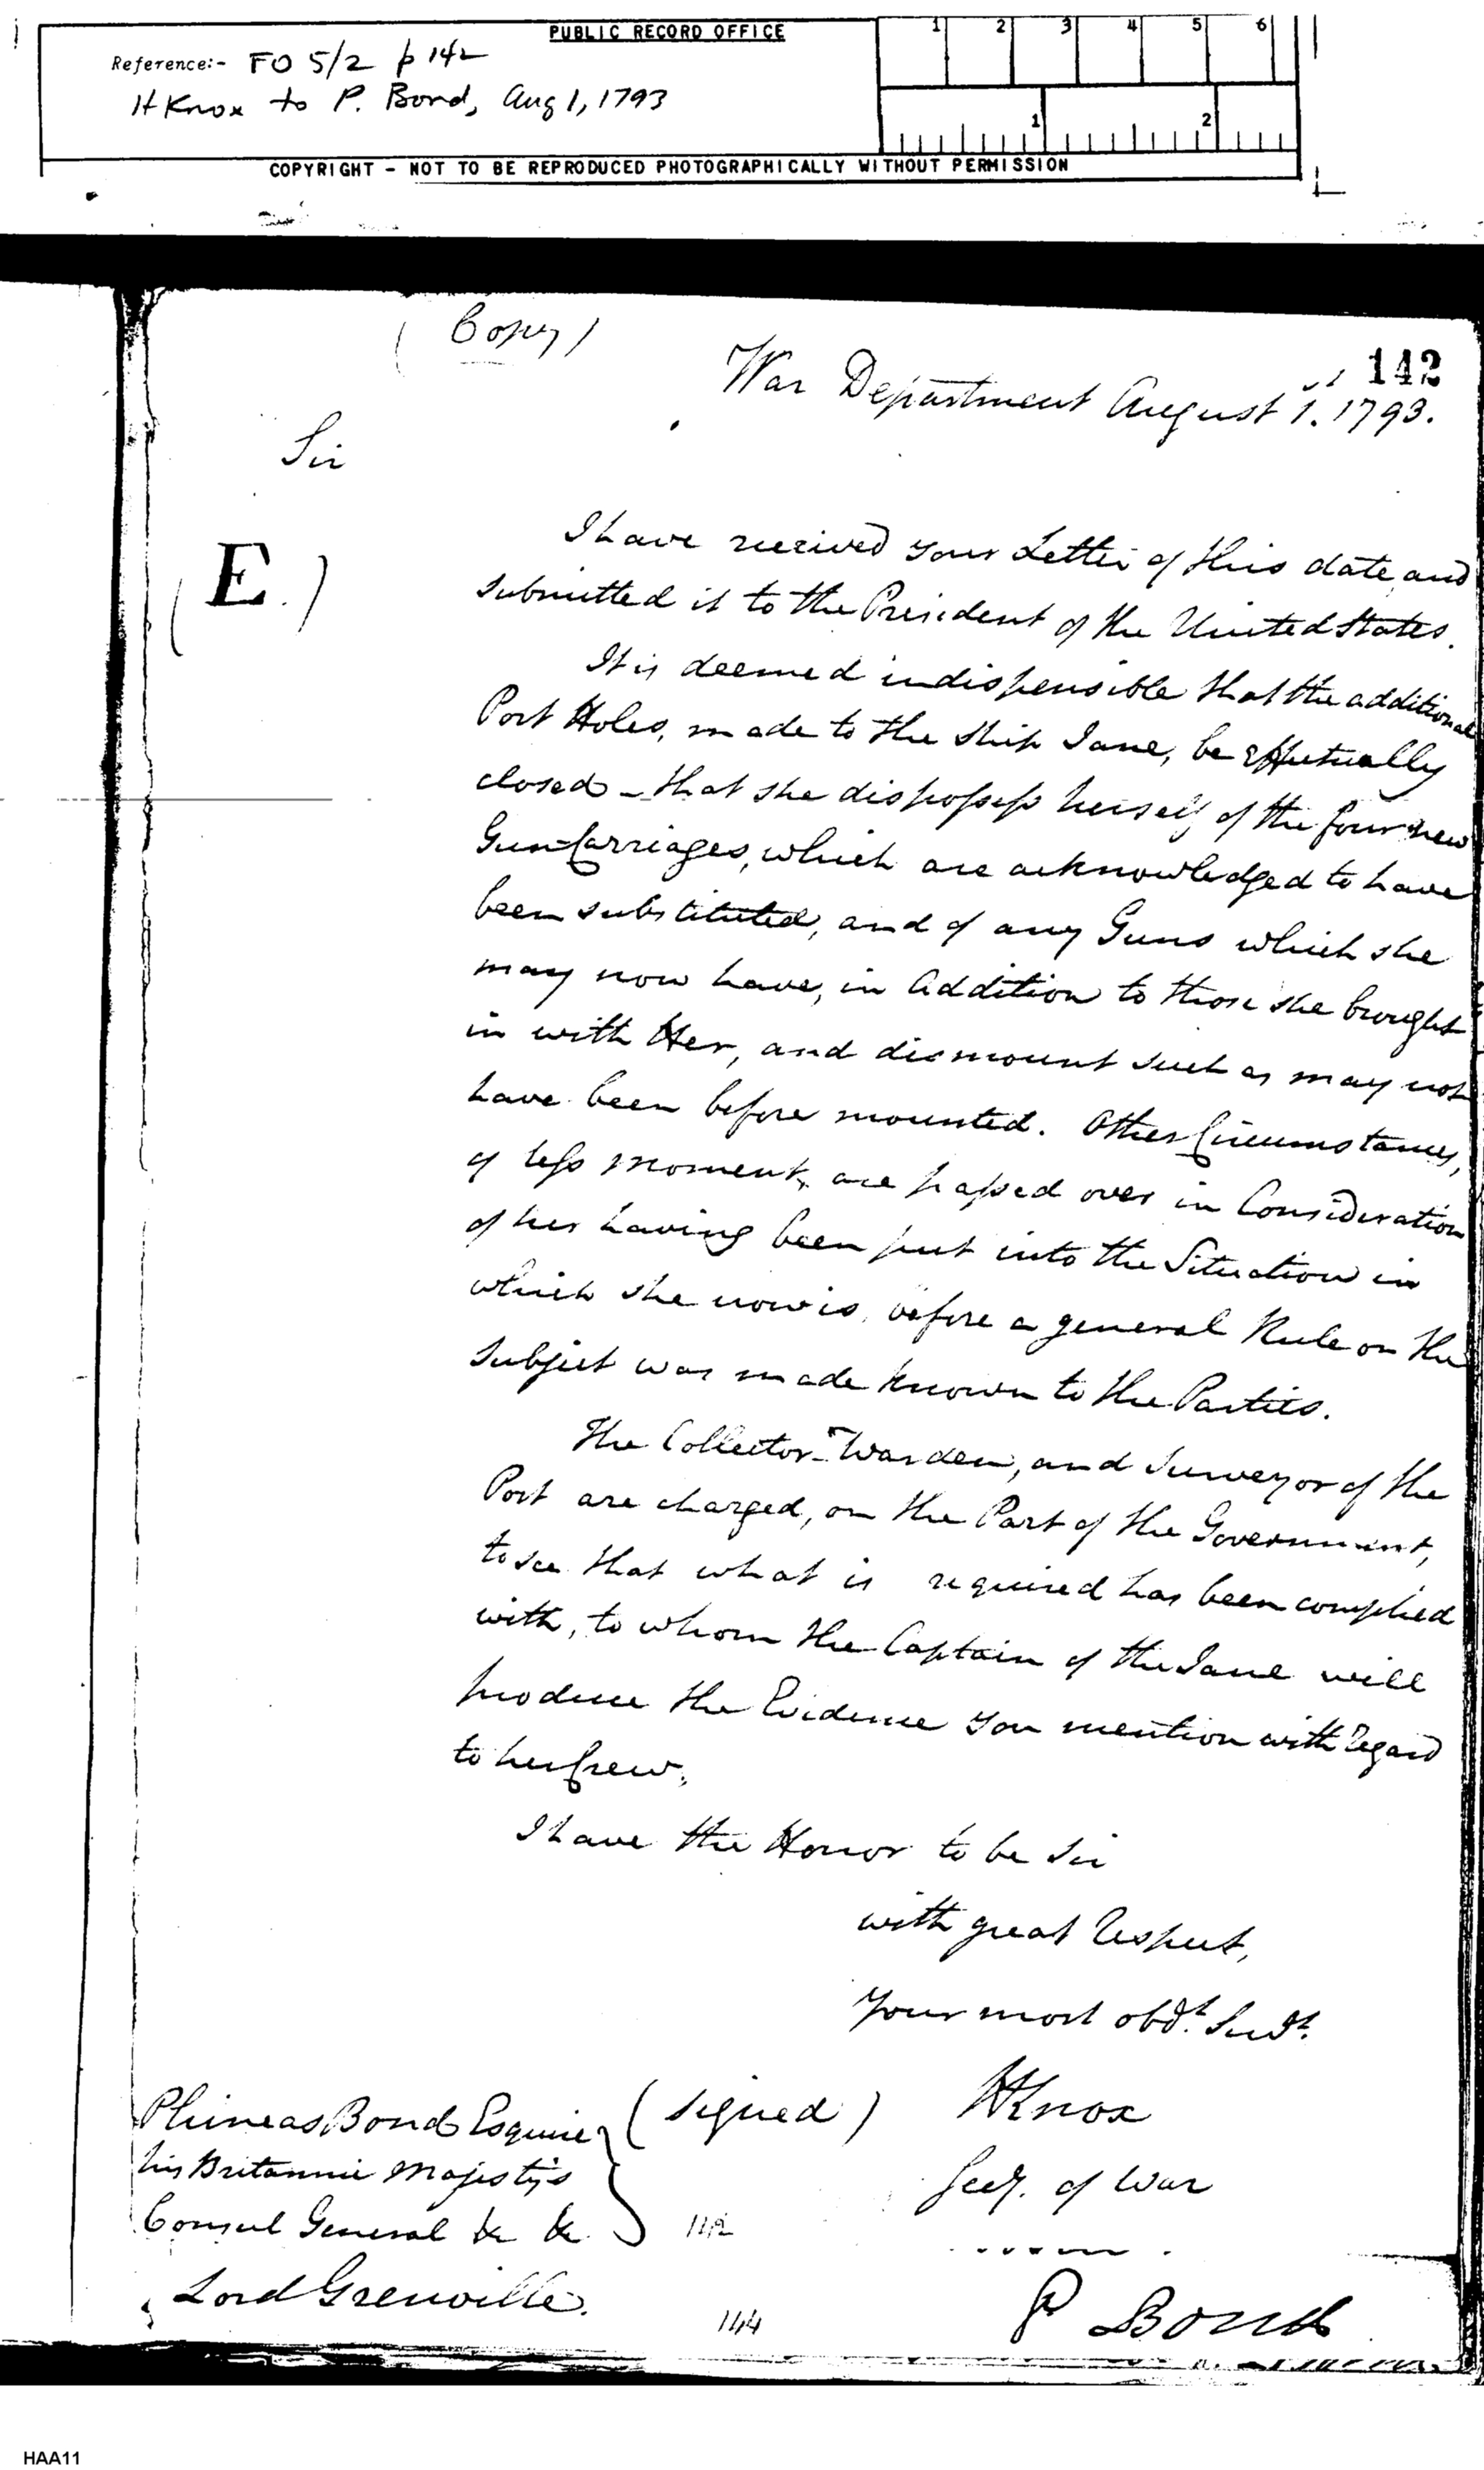 PUBLIC RECORD OFFICE
Reference:- FO 5/2 p 142
H Knox to P. Bond, Aug 1, 1793
1 2 3 4 5 6
1 2
COPYRIGHT - NOT TO BE REPRODUCED PHOTOGRAPHICALLY WITHOUT PERMISSION
(Copy)
142
War Department August 1st. 1793.
Sir
(E.)
I have received your Letter of this date, and
submitted it to the President of the United States.
It is deemed indispensible that the additional
Port Holes, made to the Ship Jane, be effectually
closed – that she dispossess herself of the four new
Gun Carriages, which are acknowledged to have
been substituted, and of any Guns which she
may now have, in Addition to those she brought
in with Her, and dismount such as may not
have been before mounted. Other Circumstances,
of less moment, are passed over in Consideration
of her having been put into the Situation in
which she now is, before a general Rule on the
subject was made known to the Parties.
The Collector – Warden, and Surveyor of the
Port are charged, on the Part of the Government,
to see that what is required has been complied
with, to whom the Captain of the Jane will
produce the Evidence you mention with Regard
to her Crew.
I have the Honor to be Sir
with great Respect,
Your most obdt. Servt.
(signed) HKnox
Secy. of War
Phineas Bond Esquire
his Britannic Majesty's
Consul General &c &c
Lord Grenville.
144
P Bond
HAA11